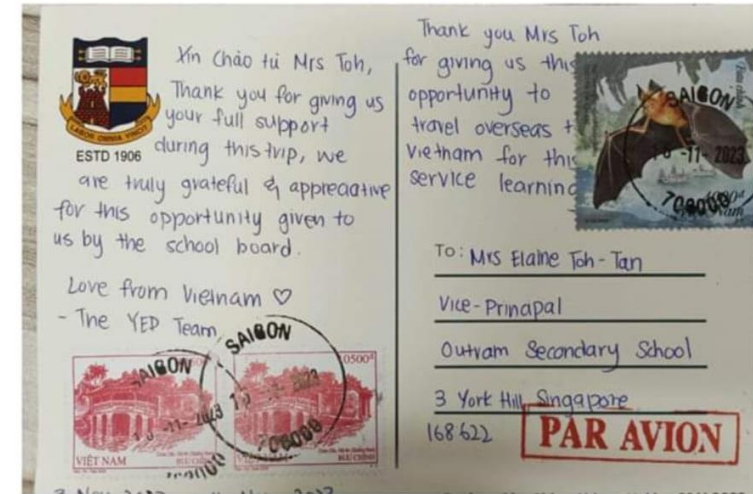 Xin Chào từ Mrs Toh,
Thank you for giving us
your full support
during this trip, we
are truly grateful & appreciative
for this opportunity given to
us by the school board.
Love from Vietnam ♡
- The YED Team
LABOR OMNIA VINCIT
ESTD 1906
SAIGON
-11- 2023
700000
VIỆT NAM
BƯU CHÍNH
SAIGON
10500đ
2023
700000
BƯU CHÍNH
Thank you Mrs Toh
for giving us this
opportunity to
travel overseas t
Vietnam for this
service learning
SAIGON
-11- 2023
700000
To: Mrs Elaine Toh-Tan
Vice-Principal
Outram Secondary School
3 York Hill, Singapore
168622
PAR AVION